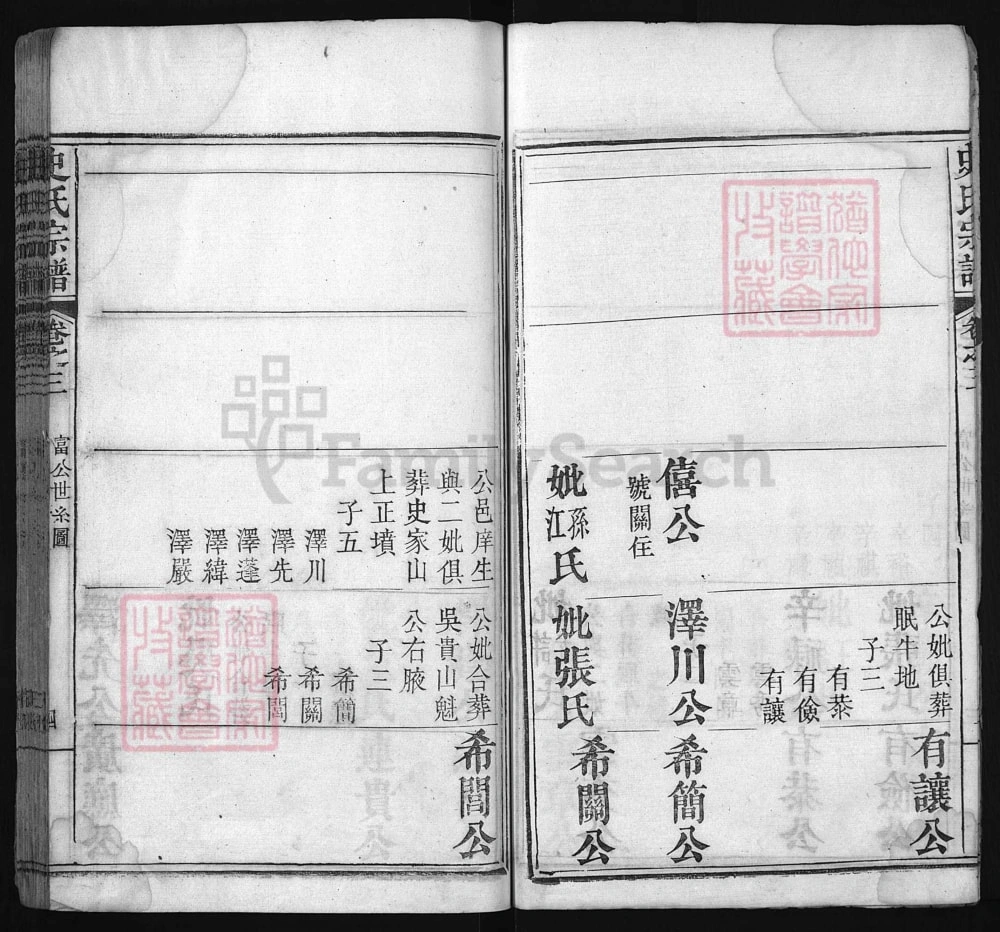 史氏宗譜
卷之三
公妣俱葬
眠牛地
子三
有恭
有儉
有讓
有讓公
僖公
號關任
妣孫江氏
澤川公
妣張氏
希簡公
希關公
公邑庠生
與二妣俱
葬史家山
上正墳
子五
澤川
澤先
澤蓬
澤緯
澤嚴
公妣合葬
吳貴山魁
公右腋
子三
希簡
希關
希閭
希閭公
史氏宗譜
卷之三
富公世系圖
FamilySearch